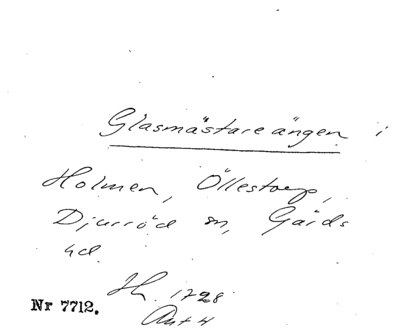 Glasmästareängen i
Holmen, Öllestorp,
Djurröd sn, Gärds
hd.
Jh. 1728
Nr 7712.
Akt 4